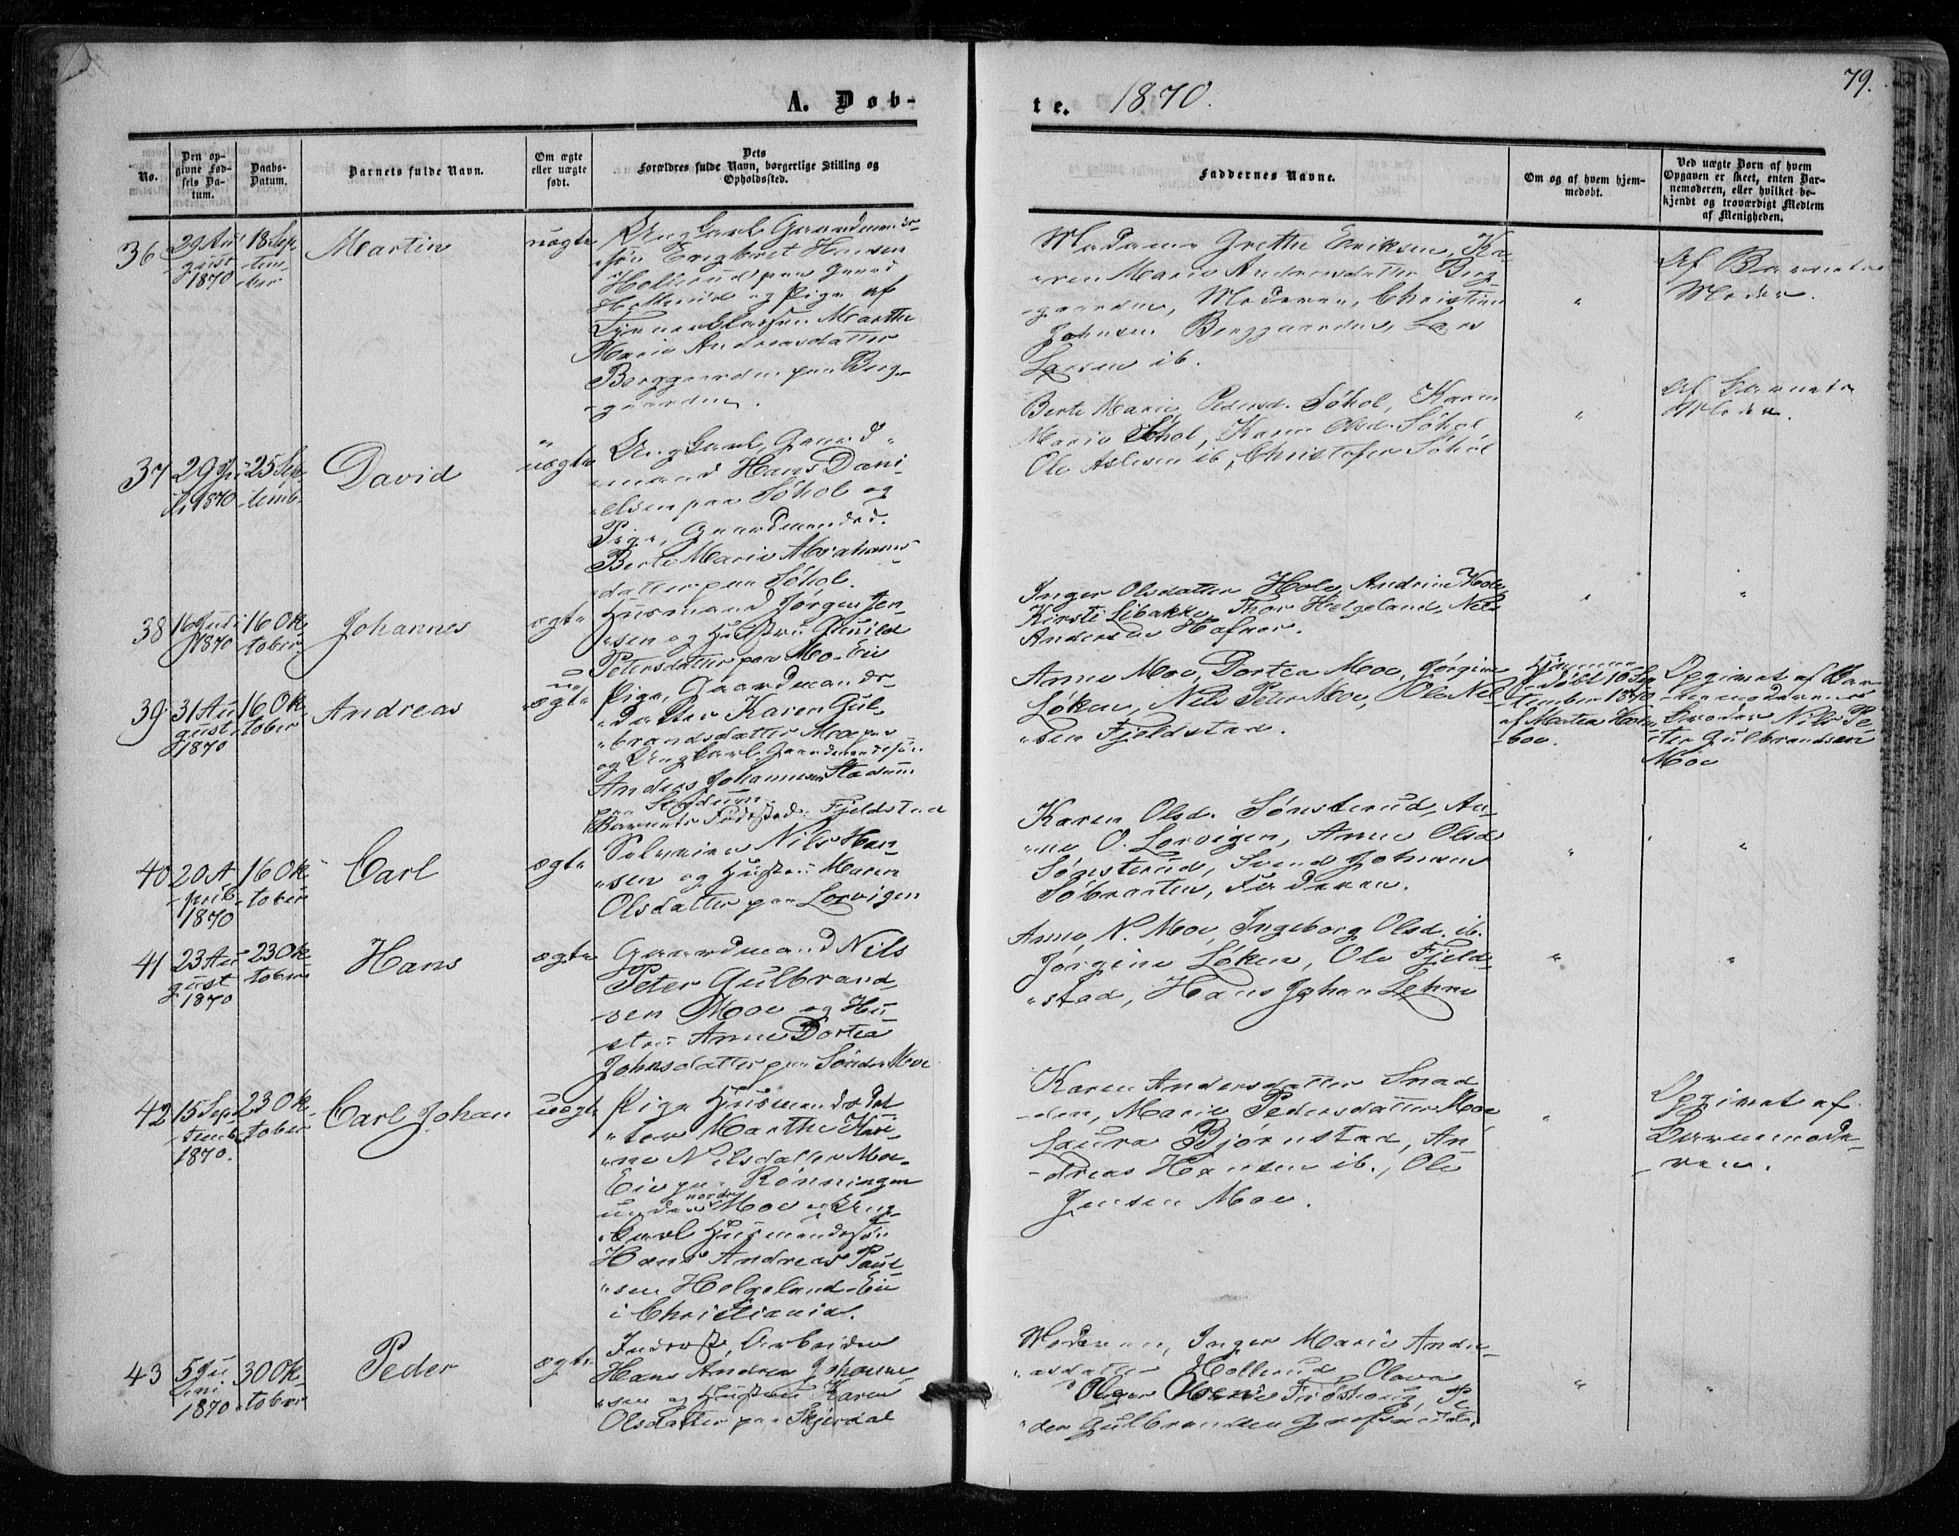 A. Døb-
te. 1870.
79.
No.
Den op-
givne Fød-
sels Da-
tum.
Daabs-
Datum.
Barnets fulde Navn.
Om ægte
eller uægte
født.
Dets
Forældres fulde Navn, borgerlige Stilling og
Opholdssted.
Faddernes Navne.
Om og af hvem hjem-
medøbt.
Ved uægte Børn af hvem
Opgaven er skeet, enten Bar-
nemoderen, eller hvilket be-
kjendt og troværdigt Medlem
af Menigheden.
36
29 Au-
gust
1870
18 Sep-
tem-
ber
Martin
uægte
Ungkarl, Gaardmands-
søn Engbret Hansen
Hollerud paa Gaard
Hollerud og Pige af
Marthe
Marie Andreasdatter
Berggaarden paa Berg-
gaarden.
Madame Grethe Eriksen, Ka-
ren Marie Andreasdatter Berg-
gaarden, Moderen, Christian
Johnsen Berggaarden, Lars
Larsen ib.
"
Af Barnets
Moder.
37
29
1870
25 Sep-
temb.
David
"
uægte
Ungkarl, Gaard-
mand Hans Dani-
elsen paa Søhol og
Pige, Gaardmandsd.
Berte Marie Abrahams-
datter paa Søhol.
Berte Marie Pedersd. Søhol, Karen
Marie Søhol, Karen Olsd. Søhol,
Ole Aslesen ib, Christofer Søhol
"
Af Barnets
Moder.
38
16 Juli
1870
16 Ok-
tober
Johannes
ægte
Husmand Jørgen Jen-
sen og Hustru Gunild
Petersdatter paa Mo-Eie
Inger Olsdatter Hole, Andrine Hole,
Kirsti Libakke, Thor Helgeland, Nils
Andersen Hafnor.
"
"
39
31 Au-
gust
1870
16 Ok-
tober
Andreas
u-
ægte
Pige, Gaardmands-
datter Karen Gul-
brandsdatter Moe
og Ungkarl, Gaardmandssøn
Anders Johannesen Stadum
paa Stadum.
Barnets Fødested: Fjeldstad
Anne Moe, Dortea Moe, Jørgine
Løken, Nils Peter Moe, Ole Niel-
sen Fjeldstad.
Hjemme-
døbt 10 Sep-
tember 1870
af Martea
-boe.
Opgivet af Bar-
nemoderens
Broder Nils Pe-
ter Gulbrandsen
Moe
40
20 A-
pril
1870
16 Ok-
tober
Carl
ægte
Nils Han-
sen og Hustru Maren
Olsdatter paa Lorvigen
Karen Olsd. Sønsterud, An-
ne O. Lorvigen, Anne Olsd.
Sønsterud, Svend Johnsen
Søbraaten, Faderen.
"
"
41
23 Au-
gust
1870
23 Ok-
tober
Hans
ægte
Gaardmand Nils
Peter Gulbrand-
sen Moe og Hu-
stru Anne Dortea
Johnsdatter paa Søndre Moe
Anne N. Moe, Ingeborg Olsd. ib.
Jørgine Løken, Ole Fjeld-
stad, Hans Johan Lehne
"
"
42
15 Sep-
temb.
1870.
23 Ok-
tober
Carl Johan
uægte
Pige Husmandsdat-
ter Marthe Kari-
ne Nilsdatter Moe-
Eie paa Rønningen
under nordre Moe og Ung-
karl Husmandssøn
Hans Andreas Paul-
sen Helgeland-Eie
i Christiania.
Karen Andersdatter Snad-
den, Marie Pedersdatter Moe
Laura Bjørnstad, An-
dreas Hansen ib., Ole
Jensen Moe.
"
Opgivet af
Barnemode-
ren.
43
5 Ju-
ni
1870
30 Ok-
tober
Peder
ægte
Inderst, Arbeider
Hans Andrea Johanne-
sen og Hustru Karen
Olsdatter paa Skjerdal
Moderen, Inger Marie Andre-
asdatter Hollerud, Olava
Olsen Frøshoug, Pe-
der Gulbrandsen
"
"